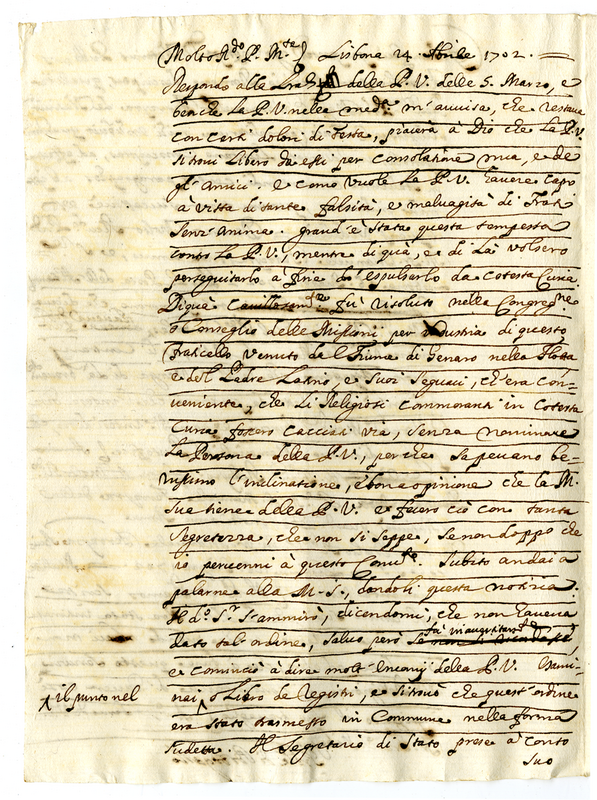 Molto R.do P. M.re Lisbona 24 Aprile 1702.
Respondo alla della P. V. delle 5. Marzo, e
benche La P. V. nella med.a m'avvisa, che restava
con certi dolori di testa, piacerà à Dio che La P. V.
si trovi libero da essi per consolatione mia, e de
gl'amici. e come vuole La P. V. havere capo
à vista di tante falsità, e malvagità di Frati
senz'anima. grand'è stata questa tempesta
contro La P. V., mentre di quà, e di Là volsero
perseguitarlo à fine di espulsarlo da cotesta Curia.
Di quà fù risoluto nella Congreg.ne
o Conseglio delle Missioni per industria di questo
fraticello venuto da l fiume di Genaro nella flotta
e del Padre Latino, e suoi seguaci, ch'era con-
veniente, che Li Religiosi commoranti in cotesta
Curia fossero cacciati via, senza nominare
La Persona della P. V., perche sapevano be-
nissimo l'inclinatione, è bona opinione che la M.
Sua tiene della P. V. e fecero ciò con tanta
segretezza, che non si seppe, se non doppo che
io pervenni à questo Conv.to. Subito andai a
palarne alla M. S., dandoli questa notizia.
Il d.o S.r s'ammirò, dicendomi, che non haveva
dato tal'ordine, salvo però se fù
e cominciò à dire molt' della P. V. Esami-
nai, o Libro de Registri, e si trovò che quest'ordine
^ il punto nel
era stato trasmesso in Commune nella forma
sudetta. Il Segretario di Stato prese à conto
suo